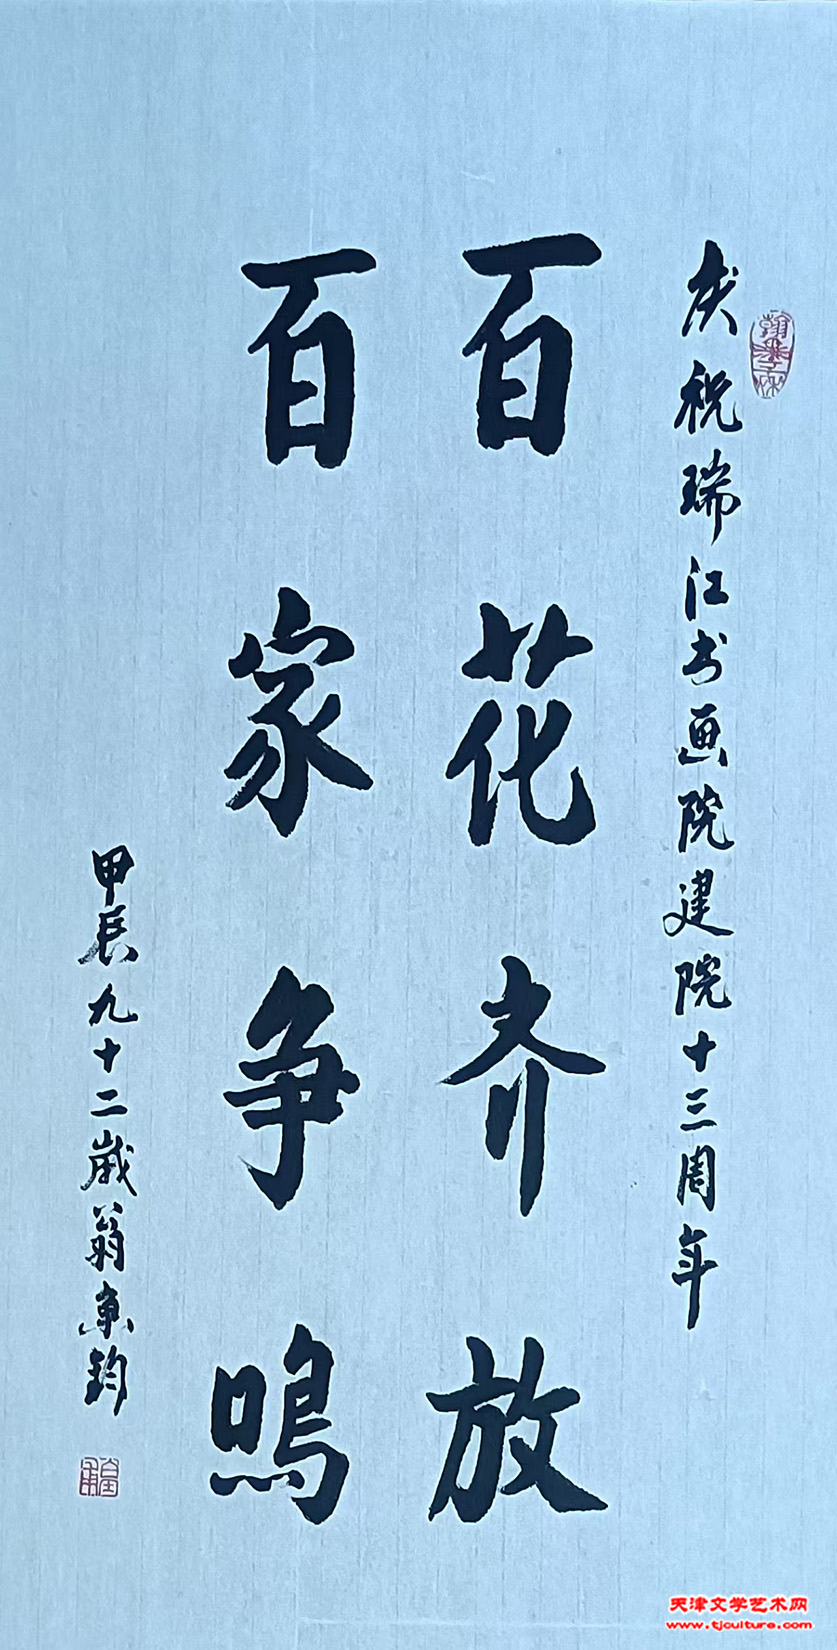 庆祝瑞江书画院建院十三周年
百花齐放
百家争鸣
甲辰九十二岁翁东钧
天津文学艺术网
www.tjculture.com